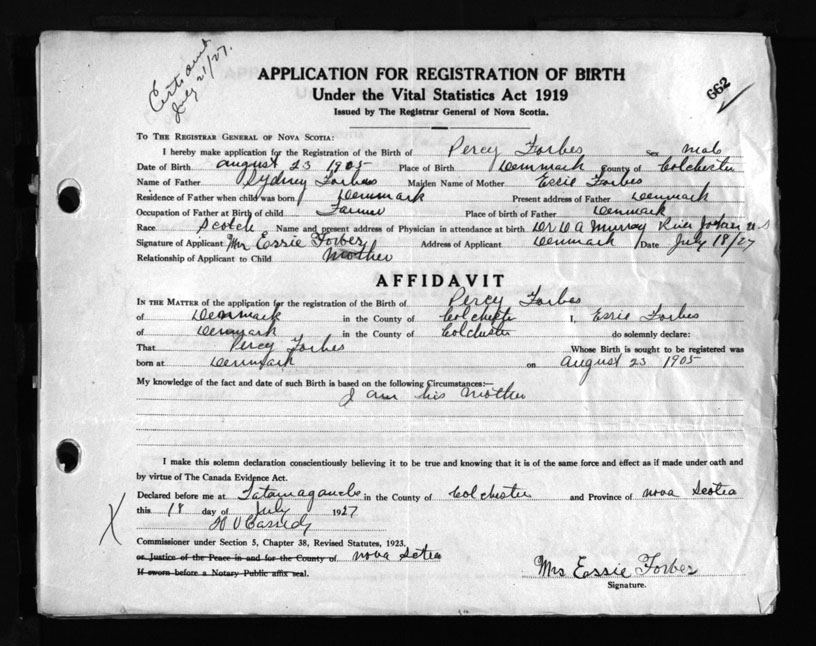 Certs sent
July 21/27.
662
APPLICATION FOR REGISTRATION OF BIRTH
Under the Vital Statistics Act 1919
Issued by The Registrar General of Nova Scotia.
TO THE REGISTRAR GENERAL OF NOVA SCOTIA:
I hereby make application for the Registration of the Birth of Percy Forbes Sex Male
Date of Birth August 23 1905 Place of Birth Denmark County of Colchester
Name of Father Sydney Forbes Maiden Name of Mother Essie Forbes
Residence of Father when child was born Denmark Present address of Father Denmark
Occupation of Father at Birth of child Farmer Place of birth of Father Denmark
Race Scotch Name and present address of Physician in attendance at birth Dr D A Murray River John N.S
Signature of Applicant Mrs Essie Forbes Address of Applicant Denmark Date July 18/27
Relationship of Applicant to Child Mother
AFFIDAVIT
IN THE MATTER of the application for the registration of the Birth of Percy Forbes
of Denmark in the County of Colchester I, Essie Forbes
of Denmark in the County of Colchester do solemnly declare:
That Percy Forbes Whose Birth is sought to be registered was
born at Denmark on August 23 1905
My knowledge of the fact and date of such Birth is based on the following Circumstances:—
I am his Mother
I make this solemn declaration conscientiously believing it to be true and knowing that it is of the same force and effect as if made under oath and
by virtue of The Canada Evidence Act.
Declared before me at Tatamagouche in the County of Colchester and Province of Nova Scotia
this 18 day of July 1927
Cassidy
Commissioner under Section 5, Chapter 38, Revised Statutes, 1923.
or Justice of the Peace in and for the County of Nova Scotia
If sworn before a Notary Public affix seal.
Mrs Essie Forbes
Signature.
X